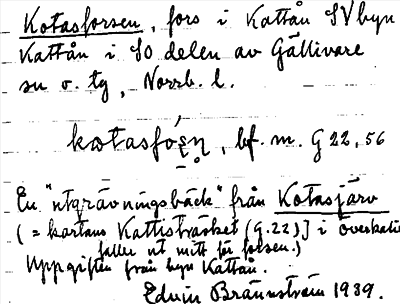 Kotasforsen, fors i Kattån SV byn
Kattån i SO delen av Gällivare
sn o. tg, Norrb. l.
bf. m. G 22, 56
En "utgrävningsbäck" från Kotasjärv
(= kartans Kattisträsket (G.22)] i
faller ut mitt för forsen.)
Uppgiften från byn Kattån.
Edvin Brännström 1939.